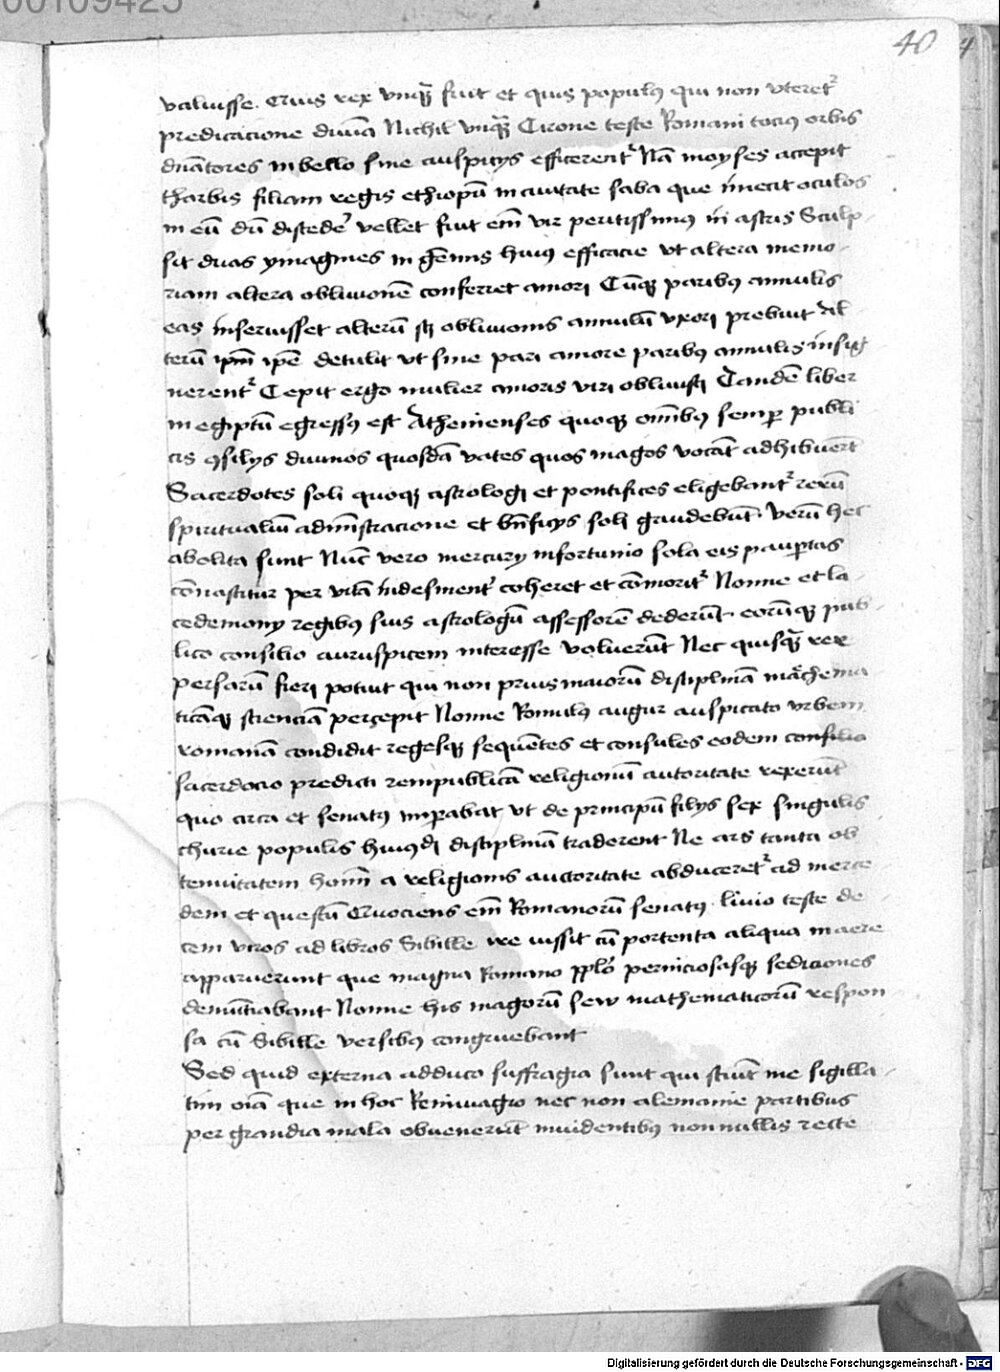 00109425
40
valuisse. Cuius rex vnqᷓ fuit et quis populꝰ qui non vteretᷣ
predicacione diuīa Nichil vnqᷓ Cicrone teste Romani tociꝰ orbis
dn̄atores in bello sine auspicijs efficerentᷣ Nā moyses accepit
tharbis filiam regis ethiopū in ciuitate saba que iniecit oculos
in eū dū discede᷑ vellet fuit em̄ vir peritissimꝰ in astris Sculp-
sit duas ymagines in gēmis huiꝰ efficacie vt altera memo-
riam altera obliuionē conferret amori Cūqꝫ paribꝰ annulis
eas inseruisset alterū sꝫ obliuionis annulū vxori prebuit Al
terū ip̄m ip̄e detulit vt sine pari amore paribꝰ annulis insig
nerentᷣ Cepit ergo mulier amoris viri obliuisci Tandē liber
in egiptū egressꝰ est Athenienses quoqꝫ om̄ibꝰ semꝑ publi
cis ꝯsilijs diuinos quosdā vates quos magos vocāt adhibuer̄t
Sacerdotes soli quoqꝫ astrologi et pontifices eligebantᷣ rerū
spiritualiū adm̄istracione et bn̄ficijs soli gaudebūt Verū hec
abolita sunt Nūc vero mercurij infortunio sola eis pauꝑtas
cōnascitur per vitā indesinent᷑ coheret et cōmoritᷣ Nonne et la-
cedemonij regibꝰ suis astrologū assessorē dederūt eorūqꝫ pub-
lico consilio auruspicem interesse voluerūt Nec quisqᷓ rex
persarū fieri potuit qui non prius maiorū disciplinā mathema
ticāqꝫ scienciā percepit Nonne Romulꝰ augur auspicato vrbem
romanā condidit regesqꝫ sequētes et consules eodem consilio
sacerdocio predicti rempublicā religionū autoritate rexerūt
quo circa et senatꝰ imꝑabat vt de principū filijs sex singulis
ethurie populis huiꝰdi disciplinā traderent Ne ars tanta ob
tenuitatem hoīm a religionis auctoritate abduceretᷣ ad merce
dem et questū Quociens em̄ Romanorū senatꝰ liuio teste de
cem viros ad libros Sibille ire iussit cū portenta aliqua in aere
apparuerunt que magna Romano pplo᷑ perniciosasqꝫ sediciones
denūtiabant Nonne his magorū sew mathematicorū respon
sa cū Sibille versibꝰ congruebant
Sed quid externa adduco suffragia sunt qui sciūt me sigilla-
tim oīa que in hoc Reniuagio nec non alemanie partibus
per grandia mala obuenerūt inuidentibꝰ nonnullis recte
Digitalisierung gefördert durch die Deutsche Forschungsgemeinschaft - DFG